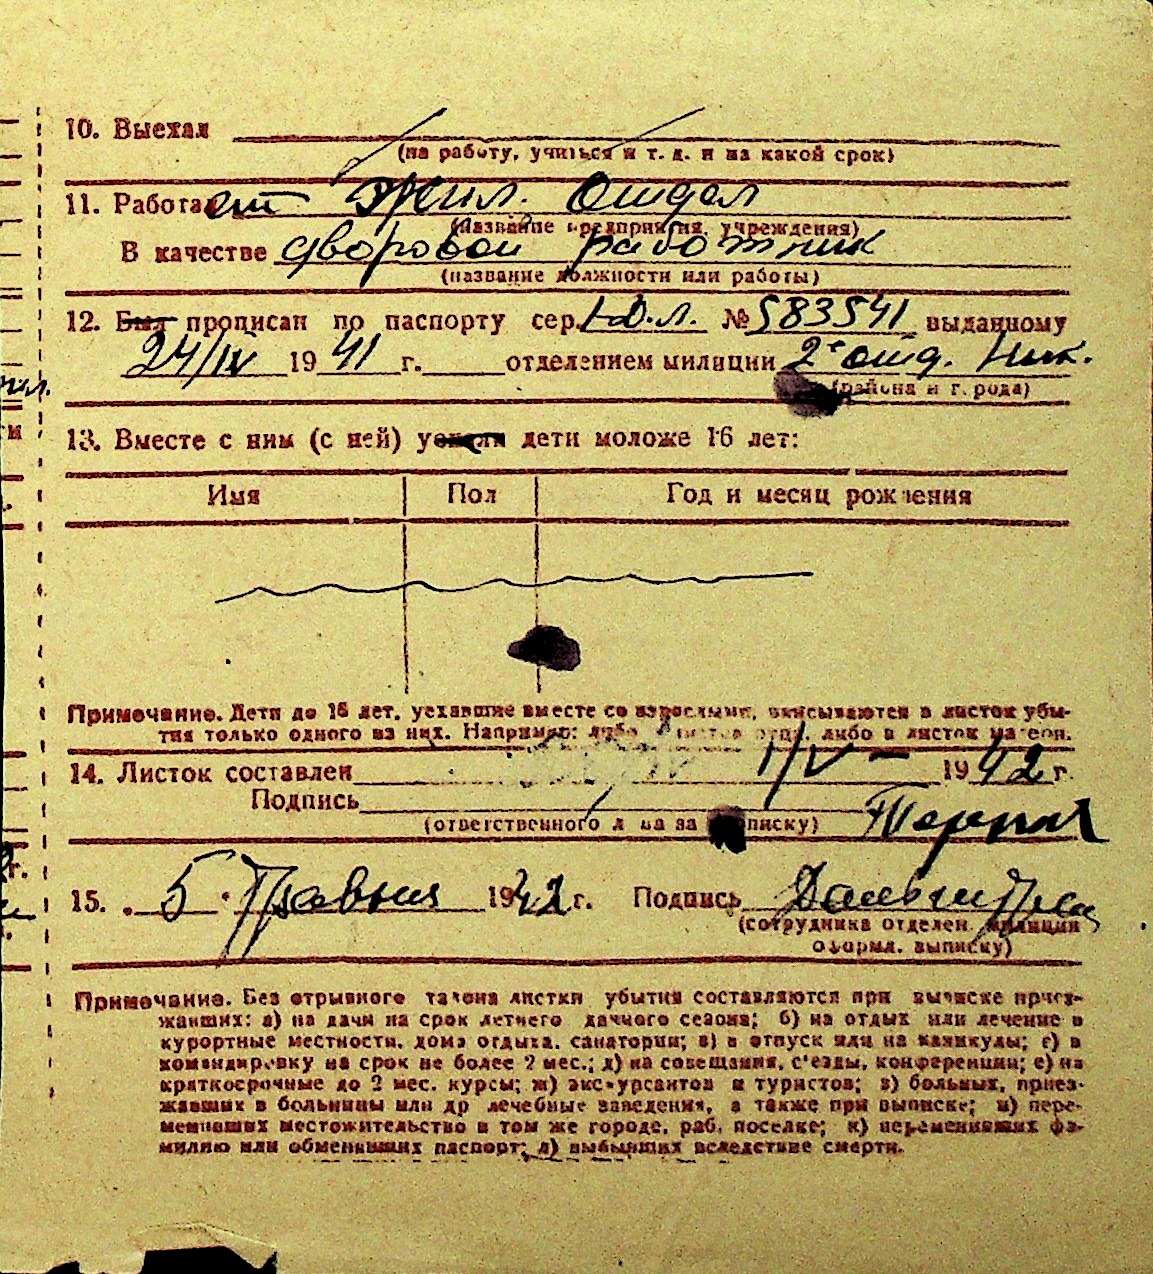 10. Выехал
(на работу, учиться и т. д. и на какой срок)
11. Работает Жил. Отдел
(название предприятия, учреждения)
В качестве дворовой работник
(название должности или работы)
12. Был прописан по паспорту сер. №583541 выданному
24/IV 1941 г. отделением милиции 2е отд. Ник.
(района и города)
13. Вместе с ним (с ней) уехали дети моложе 16 лет:
Имя Пол Год и месяц рождения
Примечание. Дети до 16 лет, уехавшие вместе со взрослыми, вписываются в листок убы-
тия только одного из них. Например: либо в листок отца, либо в листок матери.
14. Листок составлен 1/V – 1942 г.
Подпись
(ответственного лица за выписку)
15. 5 Травня 1942 г. Подпись
(сотрудника отделен. милиции
оформл. выписку)
Примечание. Без отрывного талона листки убытия составляются при выписке приез-
жавших: а) на дачи на срок летнего дачного сезона; б) на отдых или лечение в
курортные местности, дома отдыха, санатории; в) в отпуск или на каникулы; г) в
командировку на срок не более 2 мес.; д) на совещания, с'езды, конференции; е) на
краткосрочные до 2 мес. курсы; ж) экскурсантов и туристов; з) больных, приез-
жавших в больницы или др лечебные заведения, а также при выписке; и) пере-
менивших местожительство в том же городе, раб. поселке; к) переменивших фа-
милию или обменивших паспорт; л) выбывших вследствие смерти.